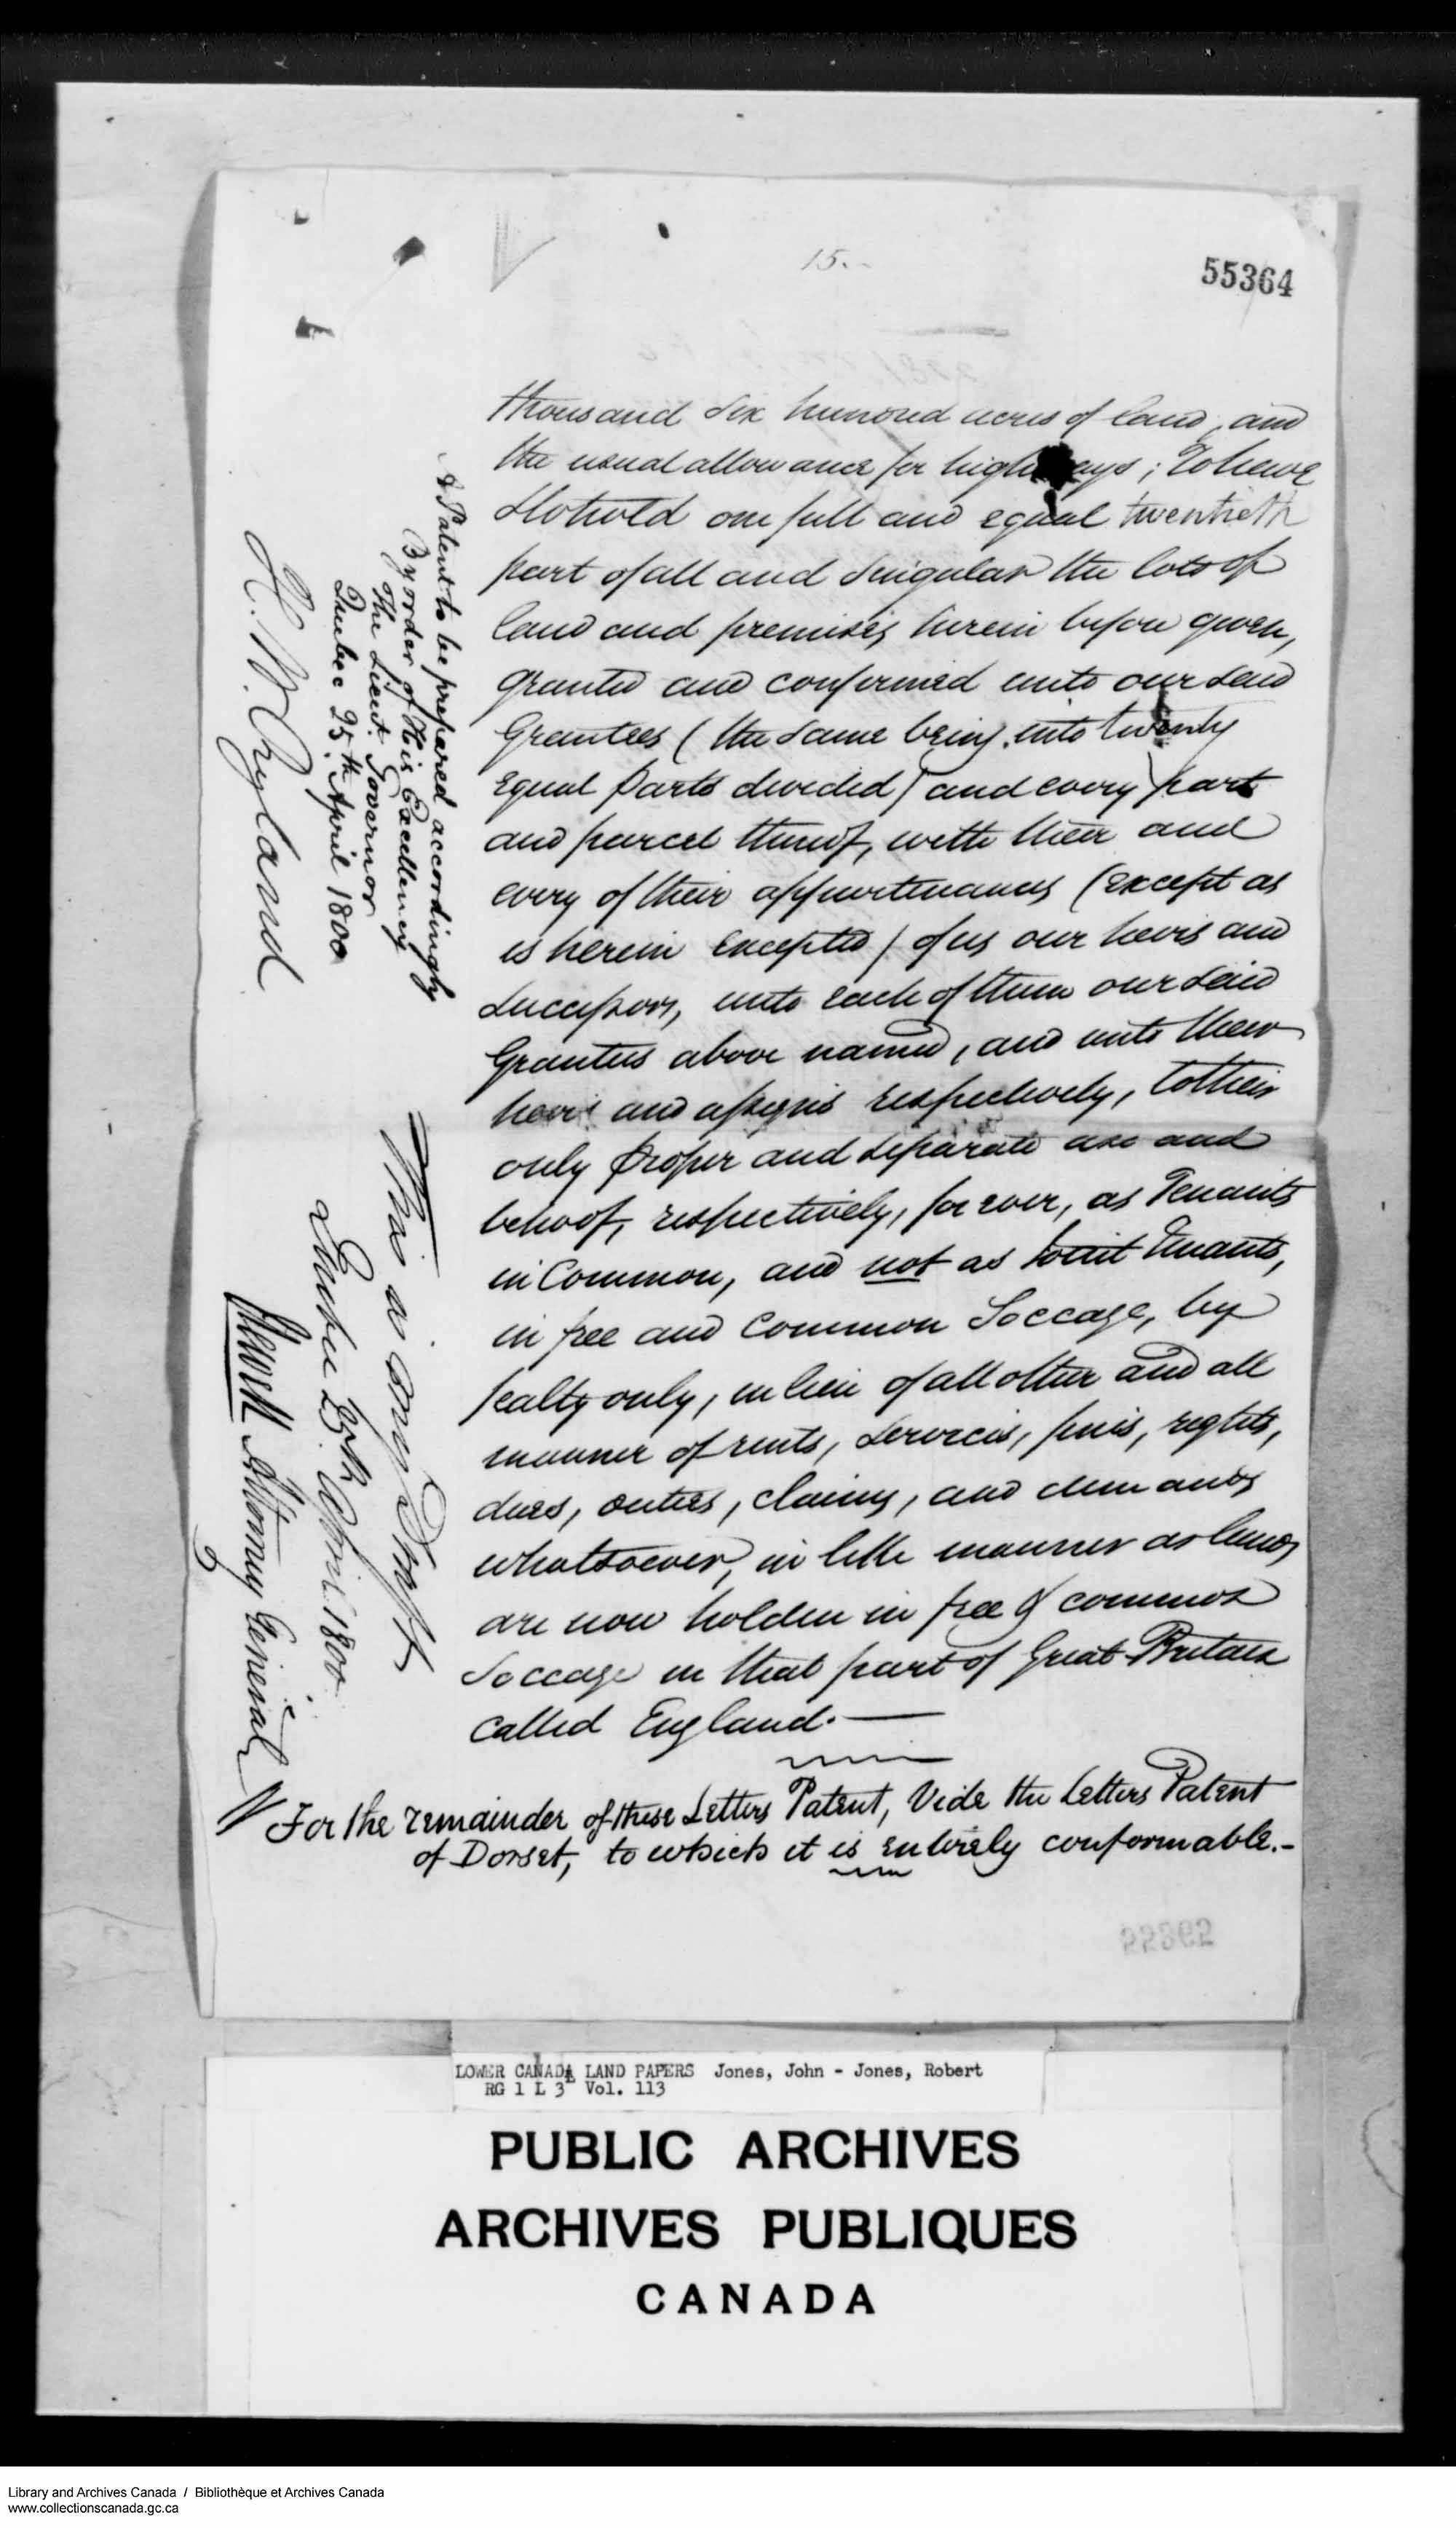 15.
55364
thousand Six hundred acres of land, and
the usual allowance for highways; To have
& to hold one full and equal twentieth
part of all and Singular the lots of
land and premises, herein before given,
granted and confirmed unto our said
Grantees (the same being into twenty
equal parts divided) and every part
and parcel thereof, with their and
every of their appurtenances (except as
is herein excepted) of us our heirs and
Successors, unto each of them our said
Grantees above named, and unto their
heirs and assigns respectively, to their
only proper and separate use and
behoof, respectively, for ever, as Tenants
in Common, and not as Joint Tenants,
in free and Common Soccage, by
fealty only, in lieu of all other and all
manner of rents, services, fines, rights,
dues, duties, claims, and demands
whatsoever, in like manner as lands
are now holden in free & common
Soccage in that part of Great Britain
called England.
For the remainder of these Letters Patent, Vide the Letters Patent
of Dorset, to which it is entirely conformable.-
A Patent to be prepared accordingly
By order of His Excellency
the Lieut. Governor
Quebec 25th April 1800
H. W. Ryland
This is my Draft
Quebec 25th April 1800.
J Sewell Attorney General
LOWER CANADA LAND PAPERS Jones, John - Jones, Robert
RG 1 L 3 Vol. 113
PUBLIC ARCHIVES
ARCHIVES PUBLIQUES
CANADA
Library and Archives Canada / Bibliothèque et Archives Canada
www.collectionscanada.gc.ca